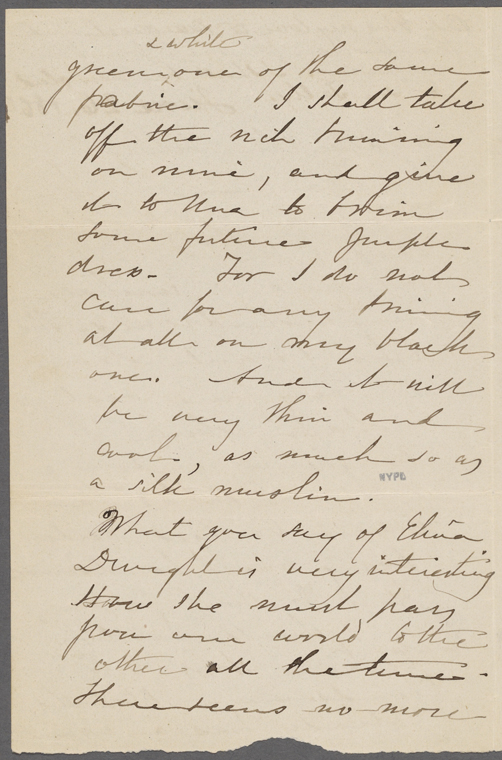 & white
green, one of the same
fabric. I shall take
off the rich trimming
on mine, and give
it to Una to trim
some future purple
dress. For I do not
care for any trimming
at all on my black
one. And it will
be very thin and
cool, as much so as
a silk muslin.
NYPL
What you say of
Dwight is very interesting
How she must pass
from one world to the
other all the time.
There seems no more